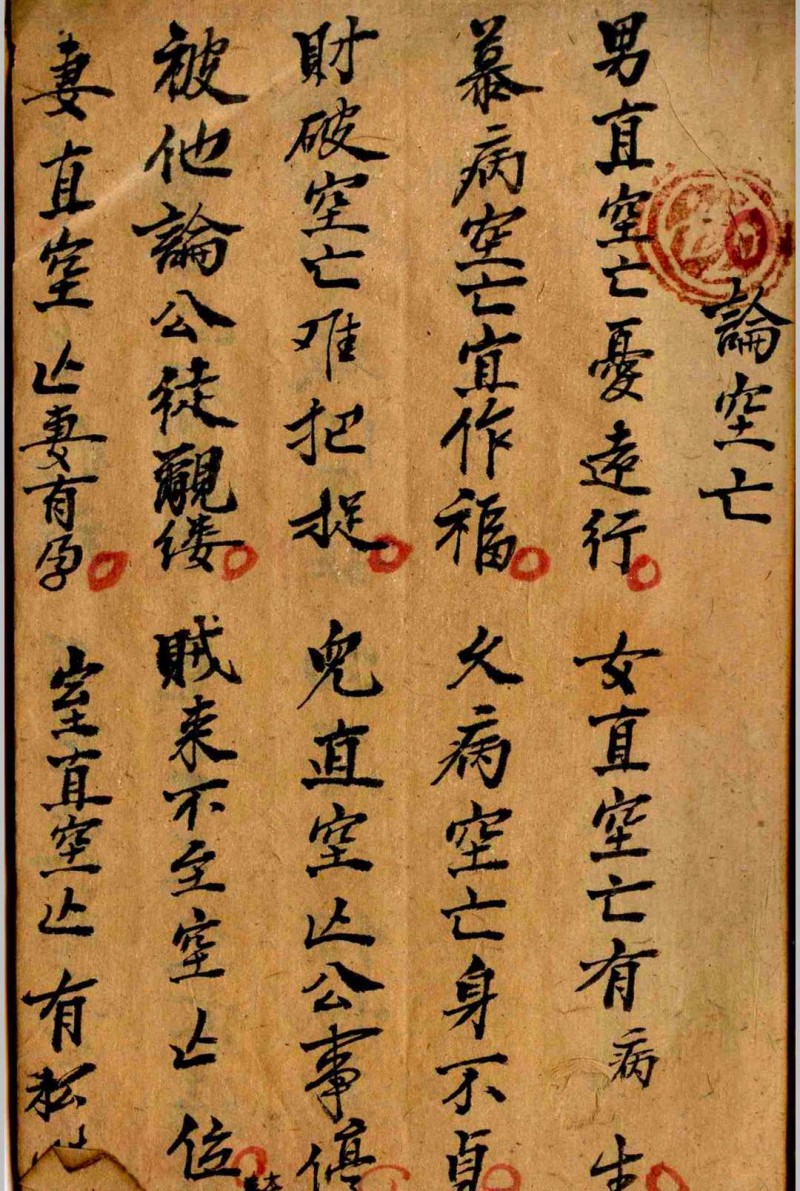 論空亡
男直空亡憂遠行 女直空亡有病生
慕病空亡宜作福 久病空亡身不貞
財破空亡难把捉 兒直空亾公事停
被他論公徒觀缕 賊来不至空亾位
妻直空亾妻有孕 室直空亾有松